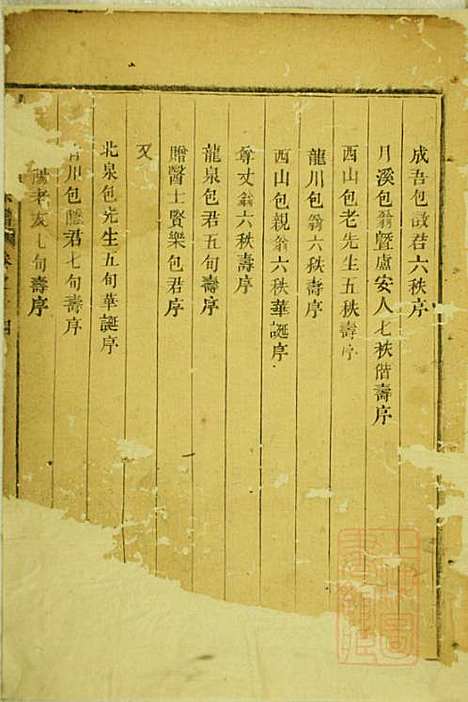 成吾包故君六秩序
月溪包翁曁盧安人七秩偕壽序
西山包老先生五秩壽序
龍川包翁六秩壽序
西山包親翁六秩華誕序
尊丈翁六秩壽序
龍泉包君五旬壽序
贈醫士賢樂包君序
又
北泉包先生五旬華誕序
川包隱君七旬壽序
老友七旬壽序